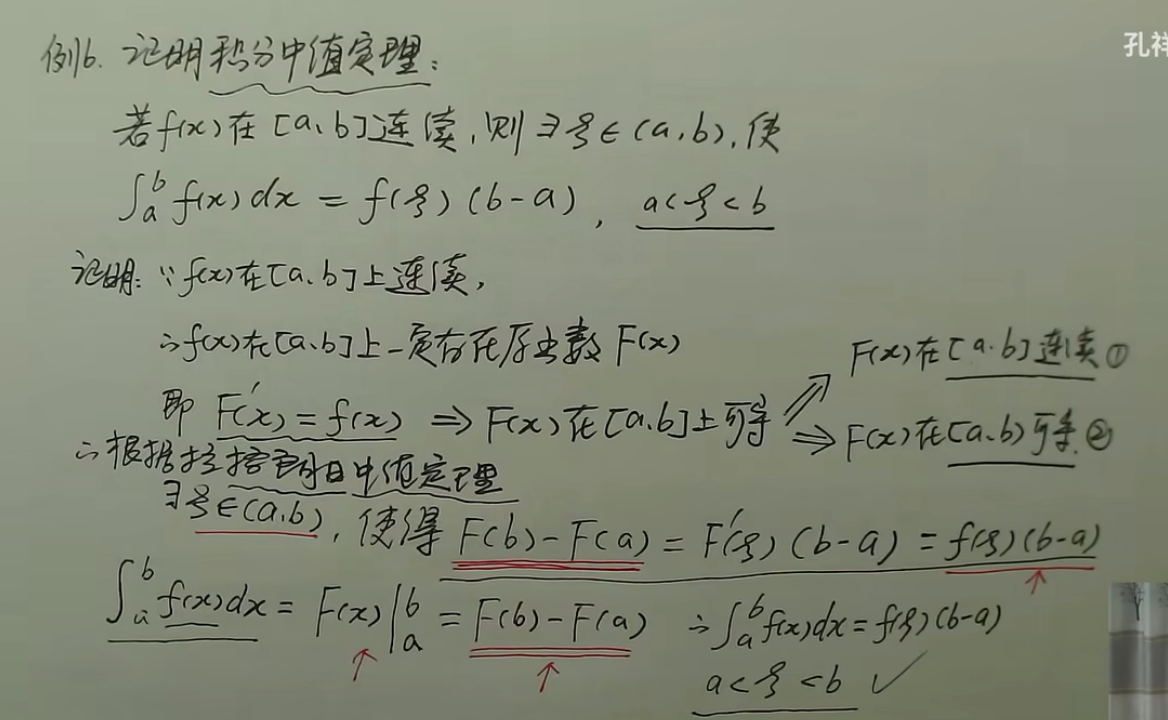 孔祥
例6. 证明积分中值定理:
若f(x)在[a、b]连续,则∃ξ∈(a,b),使
∫_a^b f(x)dx = f(ξ)(b-a), a<ξ<b
证明: ∵f(x)在[a、b]上连续,
∴f(x)在[a、b]上一定存在原函数F(x)
即 F'(x)=f(x) ⇒ F(x)在[a、b]上可导
⇒ F(x)在[a、b]连续①
⇒ F(x)在(a、b)可导.②
∴根据拉格朗日中值定理
∃ξ∈(a,b), 使得 F(b)-F(a) = F'(ξ)(b-a) = f(ξ)(b-a)
∫_a^b f(x)dx = F(x)|_a^b = F(b)-F(a) ∴∫_a^b f(x)dx=f(ξ)(b-a)
a<ξ<b ✓